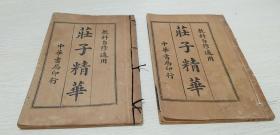 教科自修適用
莊子精華
中華書局印行
教科自修適用
莊子精華
中華書局印行